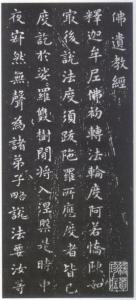 佛遺教經
釋迦牟尼佛初轉法輪度阿若憍陳如
最後說法度須跋陀羅所應度者皆已
度訖於娑羅雙樹間將入涅槃是時中
夜寂然無聲為諸弟子略說法要汝等